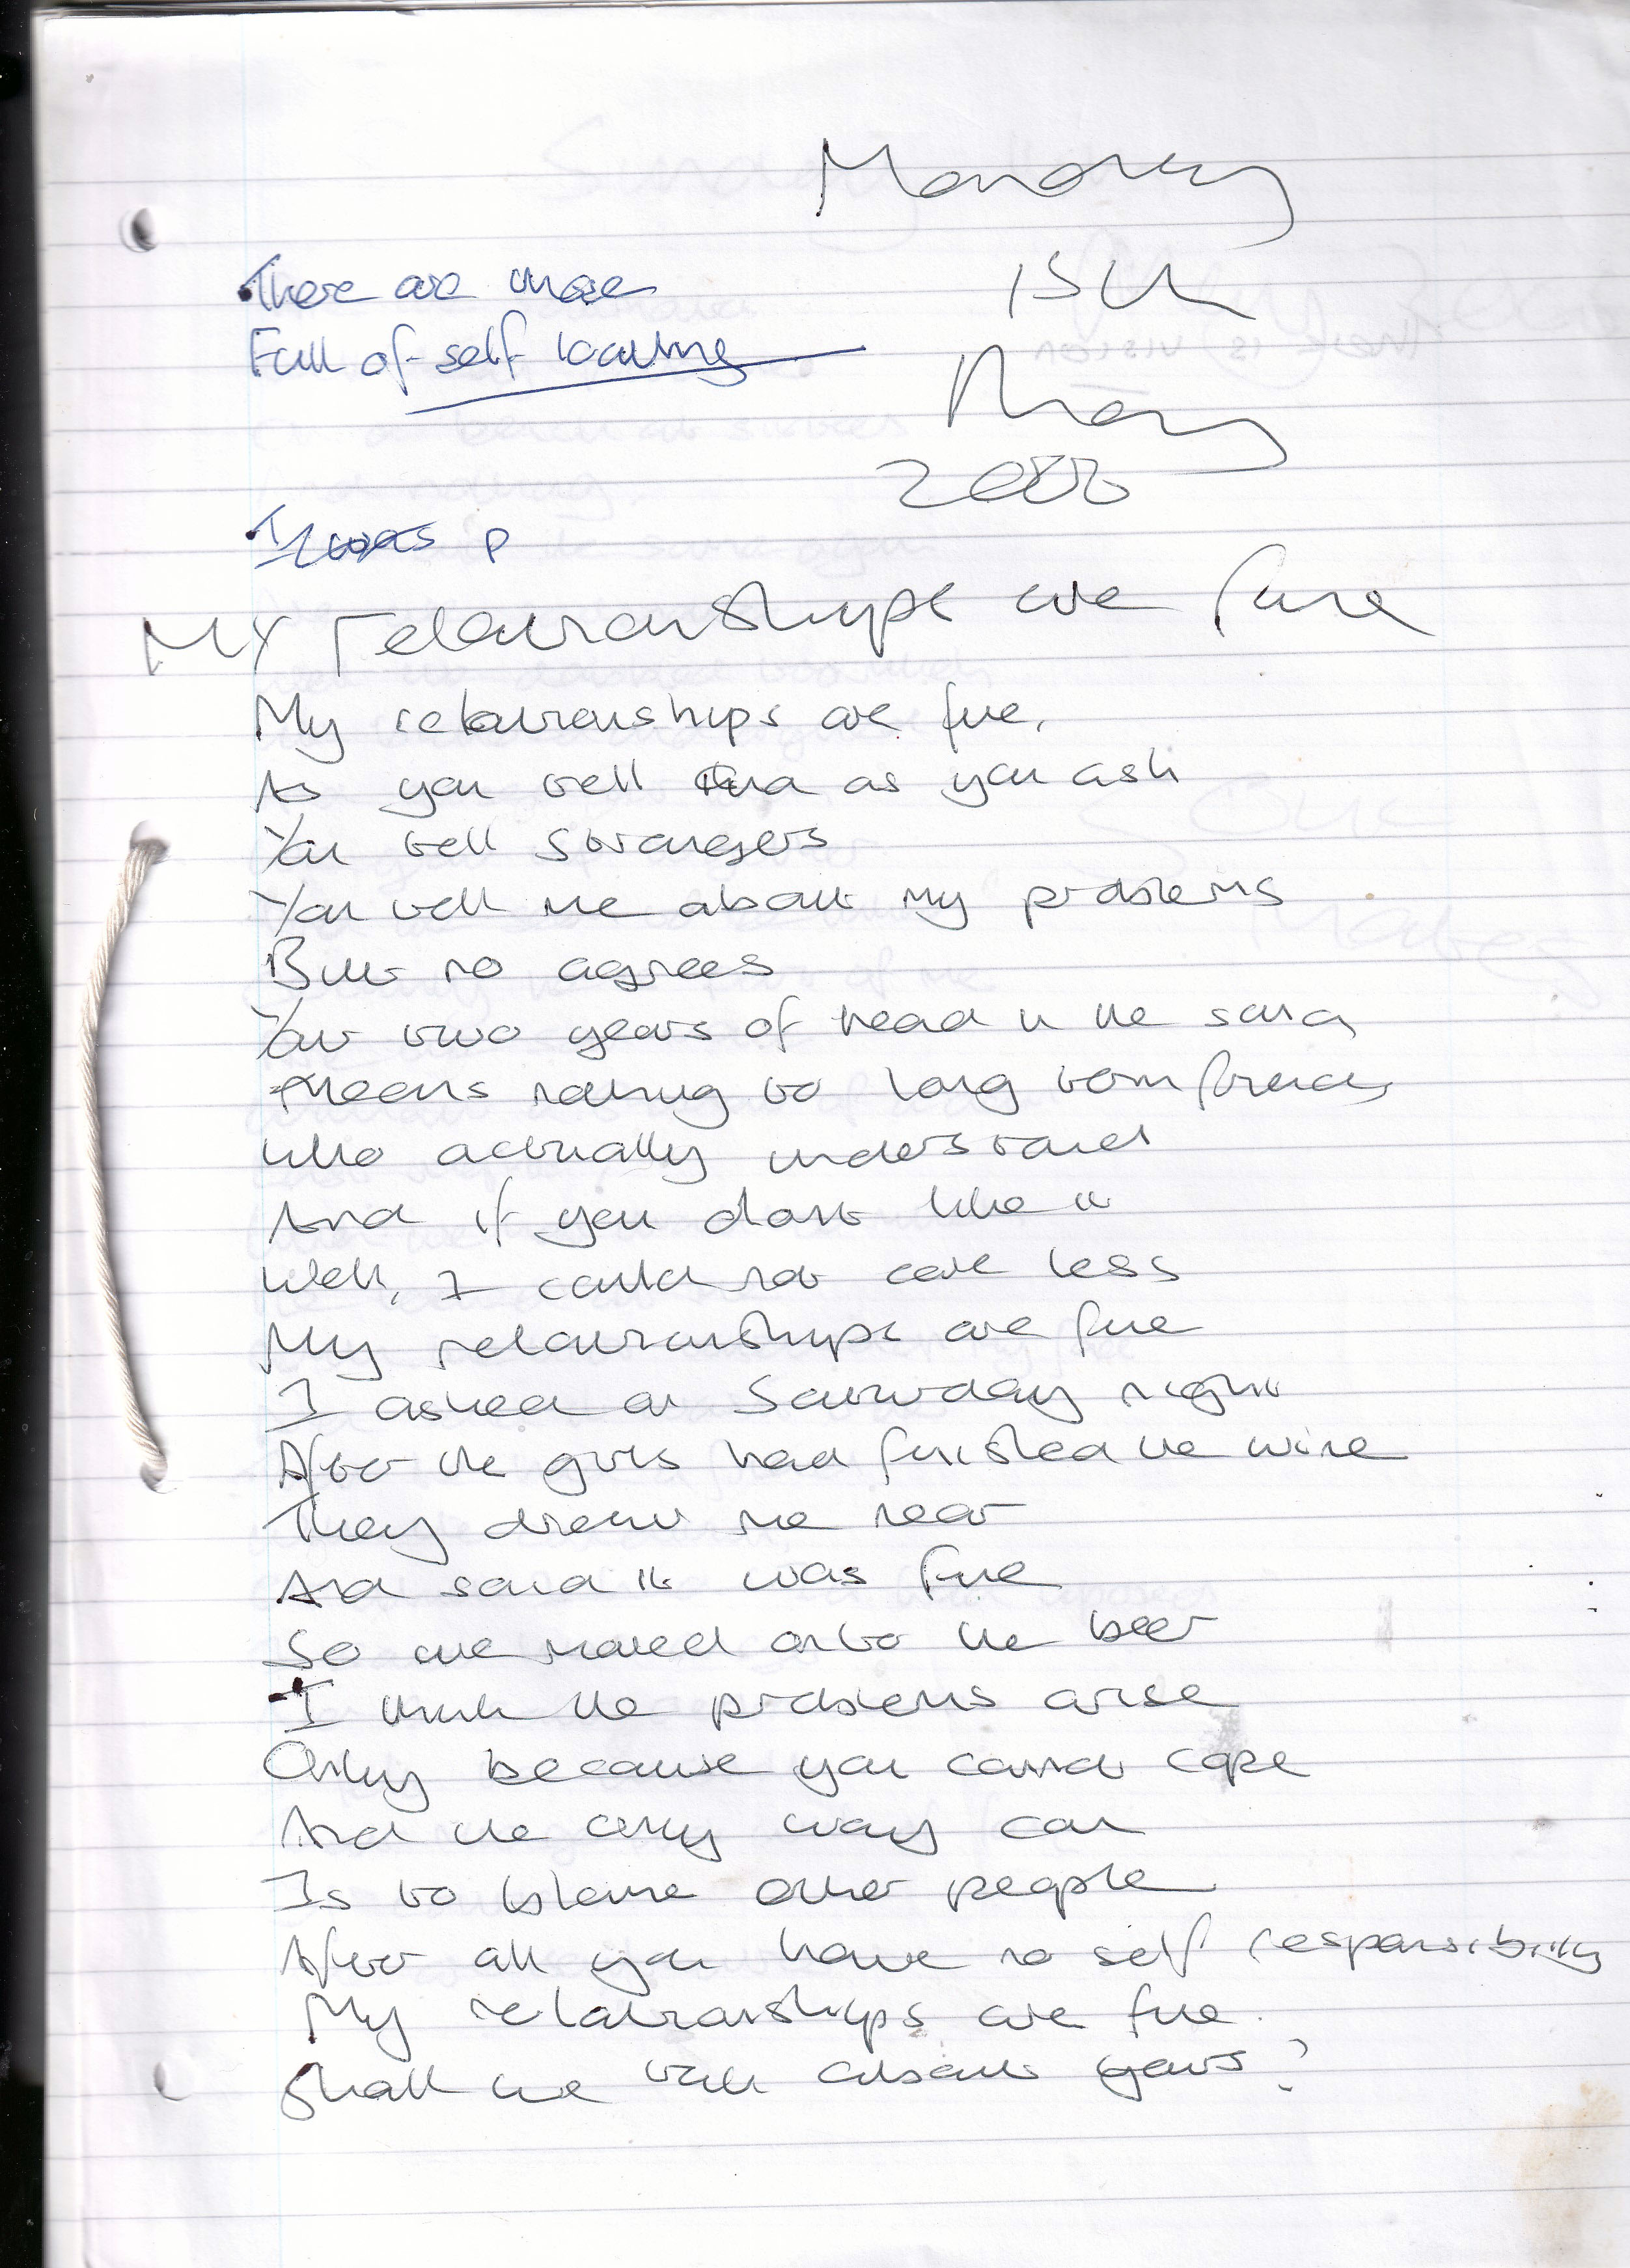 Monday
15th
May
2000
There are those
Full of self loathing
It was p
My relationships are fine
My relationships are fine,
As you tell and as you ask
You tell strangers
You tell me about my problems
But no agrees
Your two years of head in the sand
Means nothing to long term friends
Who actually understand
And if you dont like it
Well, I could not care less
My relationships are fine
I asked on Saturday night
After the girls had finished the wine
They drew me near
And said it was fine
So we moved onto the beer
I think the problems arise
Only because you cannot cope
And the only way can
Is to blame other people
After all you have no self responsibility
My relationships are fine.
Shall we talk about yours?